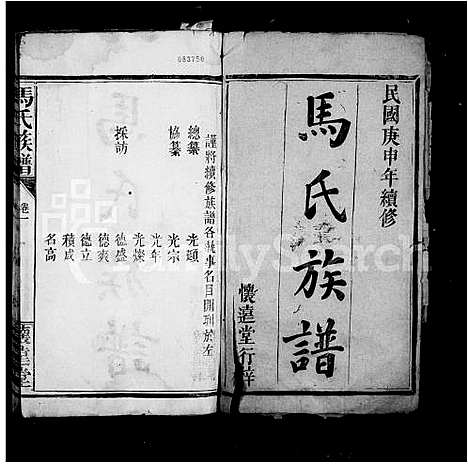 民國庚申年續修
馬氏族譜
懷遠堂行梓
083750
謹將續修族譜各董事名目開列於左
總纂 光頲
協纂 光宗
光年
採訪 光燦
德盛
德爽
德立
積成
名高
馬氏族譜
卷一
懷遠堂
FamilySearch